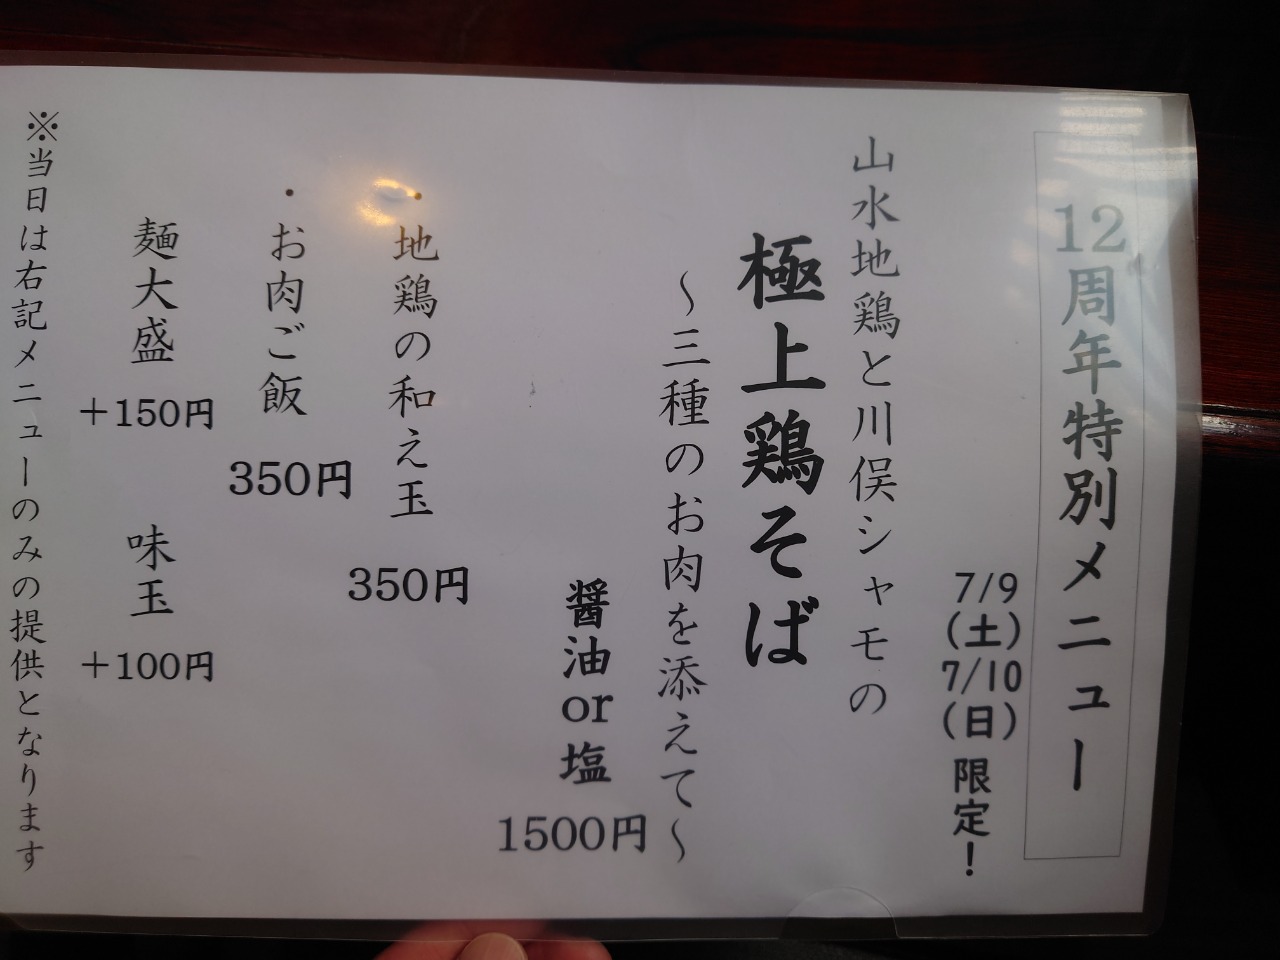 12周年特別メニュー
7/9(土)7/10(日)限定!
山水地鶏と川俣シャモの
極上鶏そば
～三種のお肉を添えて～
醤油or塩
1500円
・地鶏の和え玉 350円
・お肉ご飯 350円
麺大盛 +150円 味玉 +100円
※当日は右記メニューのみの提供となります